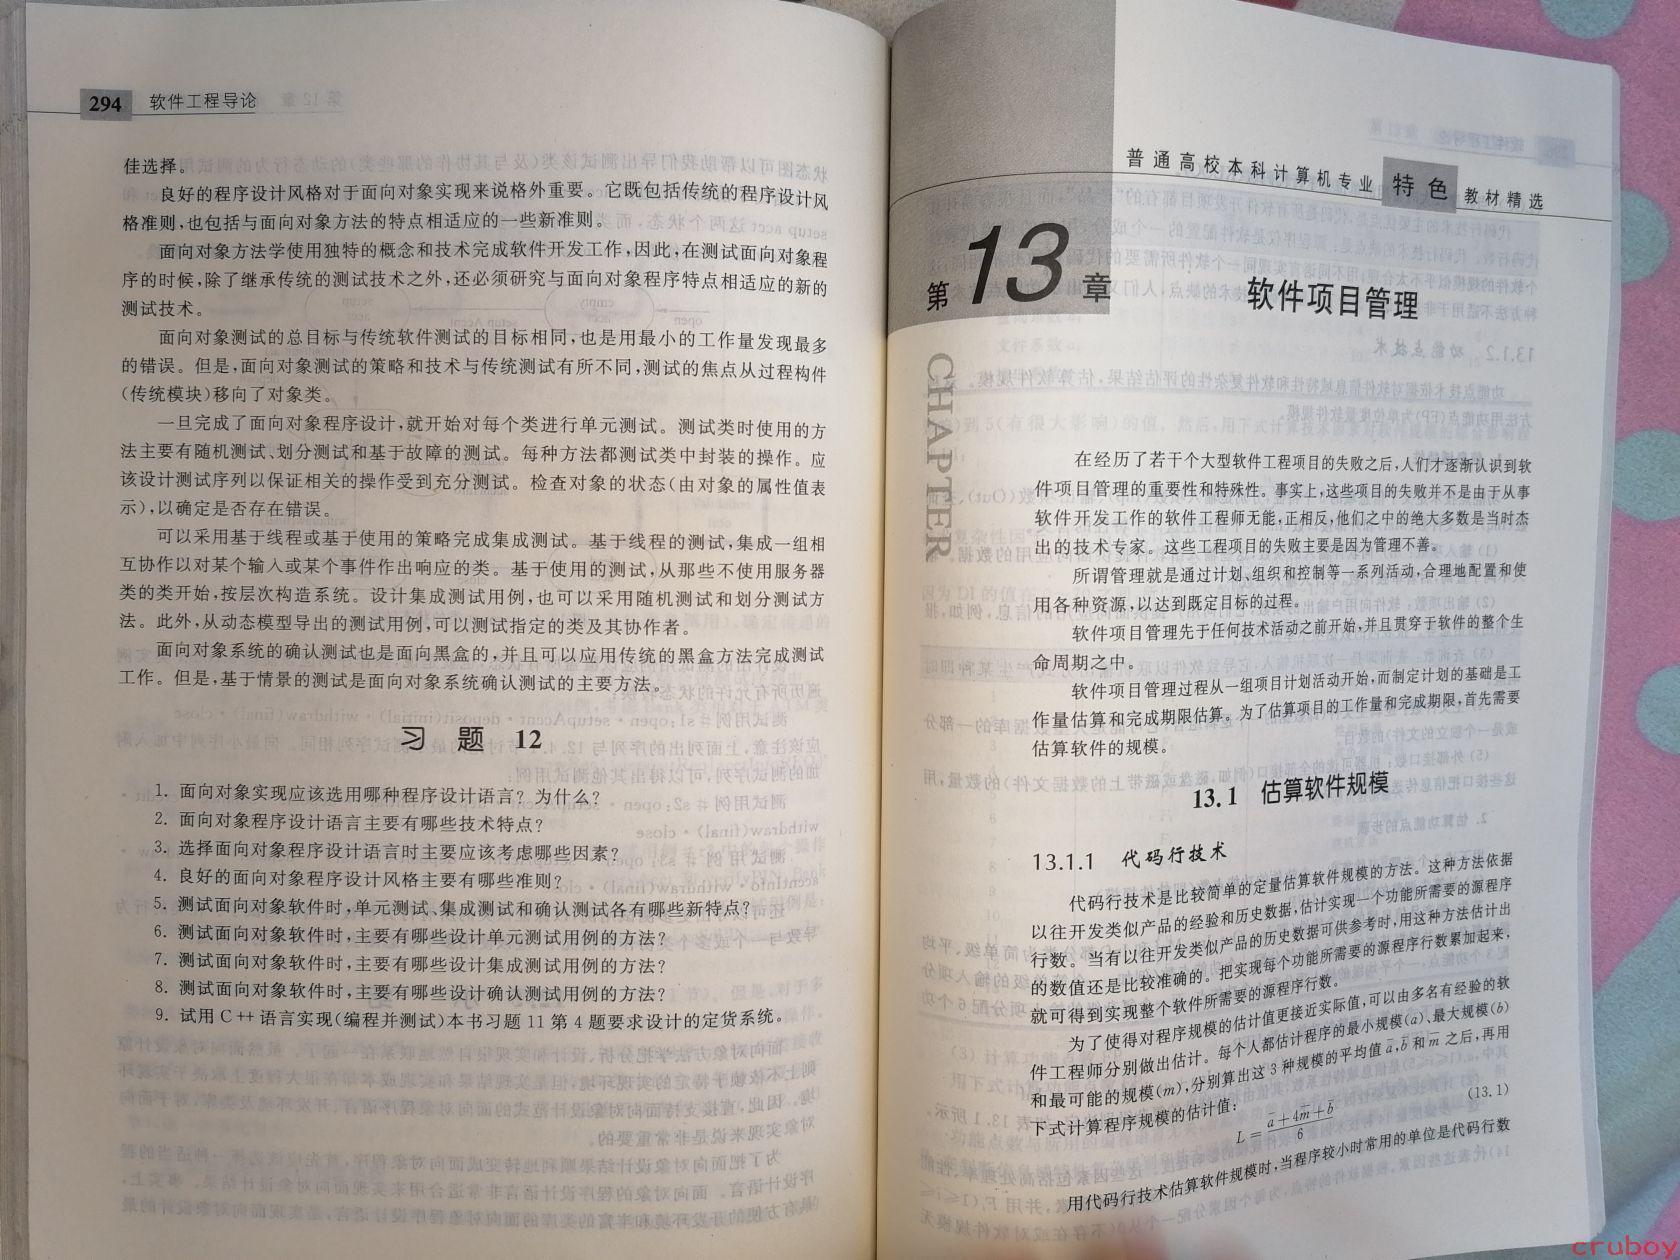 294 软件工程导论
佳选择。
良好的程序设计风格对于面向对象实现来说格外重要。它既包括传统的程序设计风
格准则,也包括与面向对象方法的特点相适应的一些新准则。
面向对象方法学使用独特的概念和技术完成软件开发工作,因此,在测试面向对象程
序的时候,除了继承传统的测试技术之外,还必须研究与面向对象程序特点相适应的新的
测试技术。
面向对象测试的总目标与传统软件测试的目标相同,也是用最小的工作量发现最多
的错误。但是,面向对象测试的策略和技术与传统测试有所不同,测试的焦点从过程构件
(传统模块)移向了对象类。
一旦完成了面向对象程序设计,就开始对每个类进行单元测试。测试类时使用的方
法主要有随机测试、划分测试和基于故障的测试。每种方法都测试类中封装的操作。应
该设计测试序列以保证相关的操作受到充分测试。检查对象的状态(由对象的属性值表
示),以确定是否存在错误。
可以采用基于线程或基于使用的策略完成集成测试。基于线程的测试,集成一组相
互协作以对某个输入或某个事件作出响应的类。基于使用的测试,从那些不使用服务器
类的类开始,按层次构造系统。设计集成测试用例,也可以采用随机测试和划分测试方
法。此外,从动态模型导出的测试用例,可以测试指定的类及其协作者。
面向对象系统的确认测试也是面向黑盒的,并且可以应用传统的黑盒方法完成测试
工作。但是,基于情景的测试是面向对象系统确认测试的主要方法。
习 题 12
1. 面向对象实现应该选用哪种程序设计语言?为什么?
2. 面向对象程序设计语言主要有哪些技术特点?
3. 选择面向对象程序设计语言时主要应该考虑哪些因素?
4. 良好的面向对象程序设计风格主要有哪些准则?
5. 测试面向对象软件时,单元测试、集成测试和确认测试各有哪些新特点?
6. 测试面向对象软件时,主要有哪些设计单元测试用例的方法?
7. 测试面向对象软件时,主要有哪些设计集成测试用例的方法?
8. 测试面向对象软件时,主要有哪些设计确认测试用例的方法?
9. 试用 C++ 语言实现(编程并测试)本书习题 11 第 4 题要求设计的定货系统。
普通高校本科计算机专业 特色 教材精选
第 13 章 软件项目管理
CHAPTER
在经历了若干个大型软件工程项目的失败之后,人们才逐渐认识到软
件项目管理的重要性和特殊性。事实上,这些项目的失败并不是由于从事
软件开发工作的软件工程师无能,正相反,他们之中的绝大多数是当时杰
出的技术专家。这些工程项目的失败主要是因为管理不善。
所谓管理就是通过计划、组织和控制等一系列活动,合理地配置和使
用各种资源,以达到既定目标的过程。
软件项目管理先于任何技术活动之前开始,并且贯穿于软件的整个生
命周期之中。
软件项目管理过程从一组项目计划活动开始,而制定计划的基础是工
作量估算和完成期限估算。为了估算项目的工作量和完成期限,首先需要
估算软件的规模。
13.1 估算软件规模
13.1.1 代码行技术
代码行技术是比较简单的定量估算软件规模的方法。这种方法依据
以往开发类似产品的经验和历史数据,估计实现一个功能所需要的源程序
行数。当有以往开发类似产品的历史数据可供参考时,用这种方法估计出
的数值还是比较准确的。把实现每个功能所需要的源程序行数累加起来,
就可得到实现整个软件所需要的源程序行数。
为了使得对程序规模的估计值更接近实际值,可以由多名有经验的软
件工程师分别做出估计。每个人都估计程序的最小规模(a)、最大规模(b)
和最可能的规模(m),分别算出这 3 种规模的平均值 a̅,b̅ 和 m̅ 之后,再用
下式计算程序规模的估计值:
L = (a̅+4m̅+b̅)/6 (13.1)
用代码行技术估算软件规模时,当程序较小时常用的单位是代码行数
cruboy